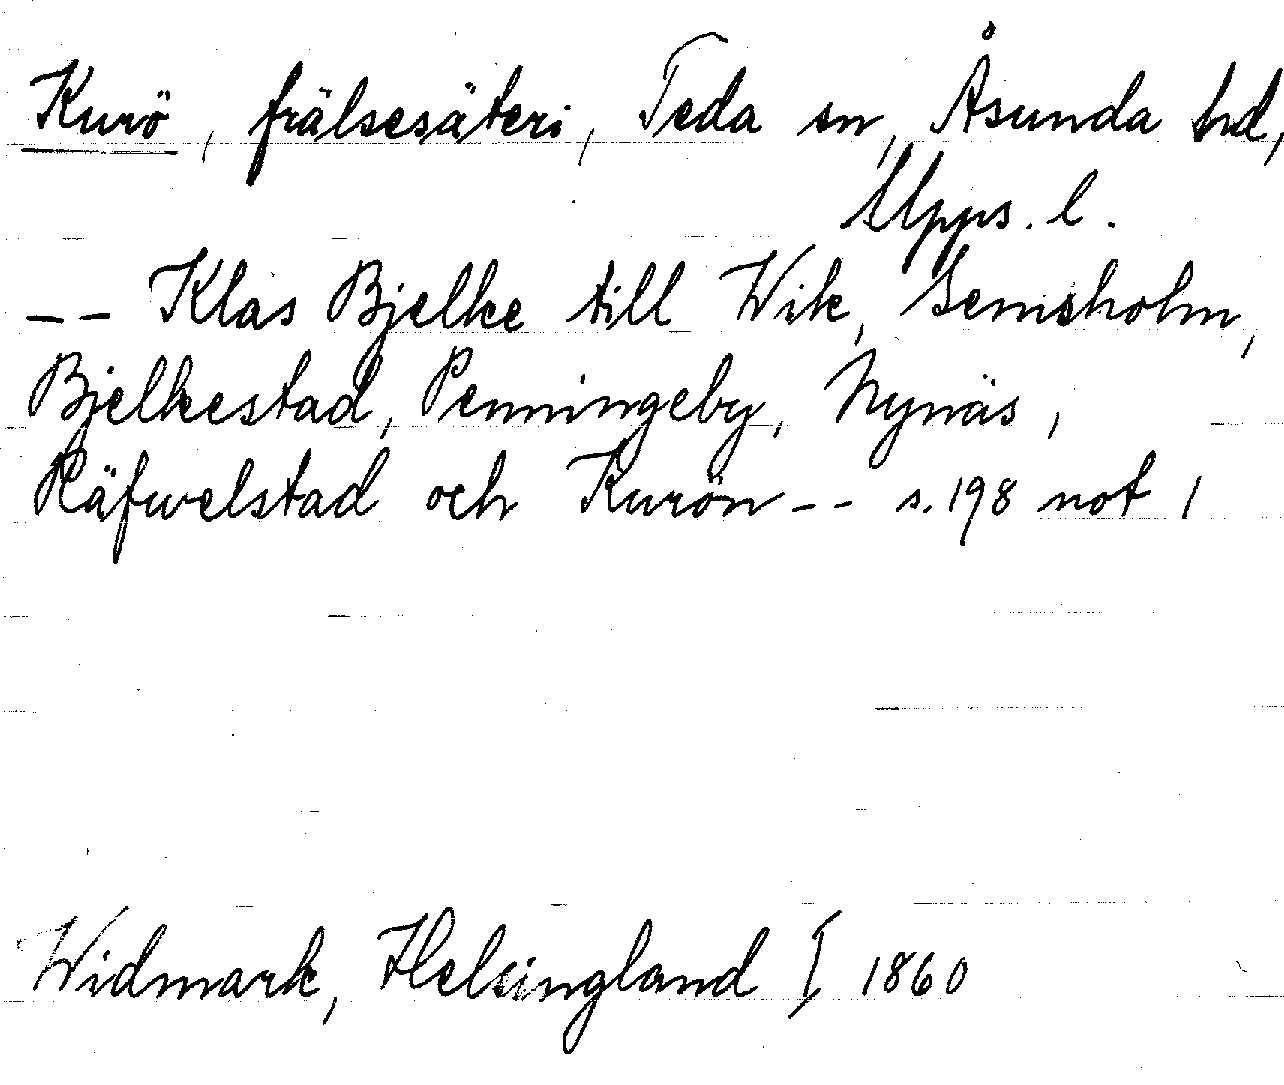 Kurö, frälsesäteri, Teda sn, Åsunda hd,
Upps. l.
-- Klas Bjelke till Wik, Gemsholm,
Bjelkestad, Penningeby, Nynäs,
Räfwelstad och Kurön -- s. 198 not 1
Widmark, Helsingland I 1860